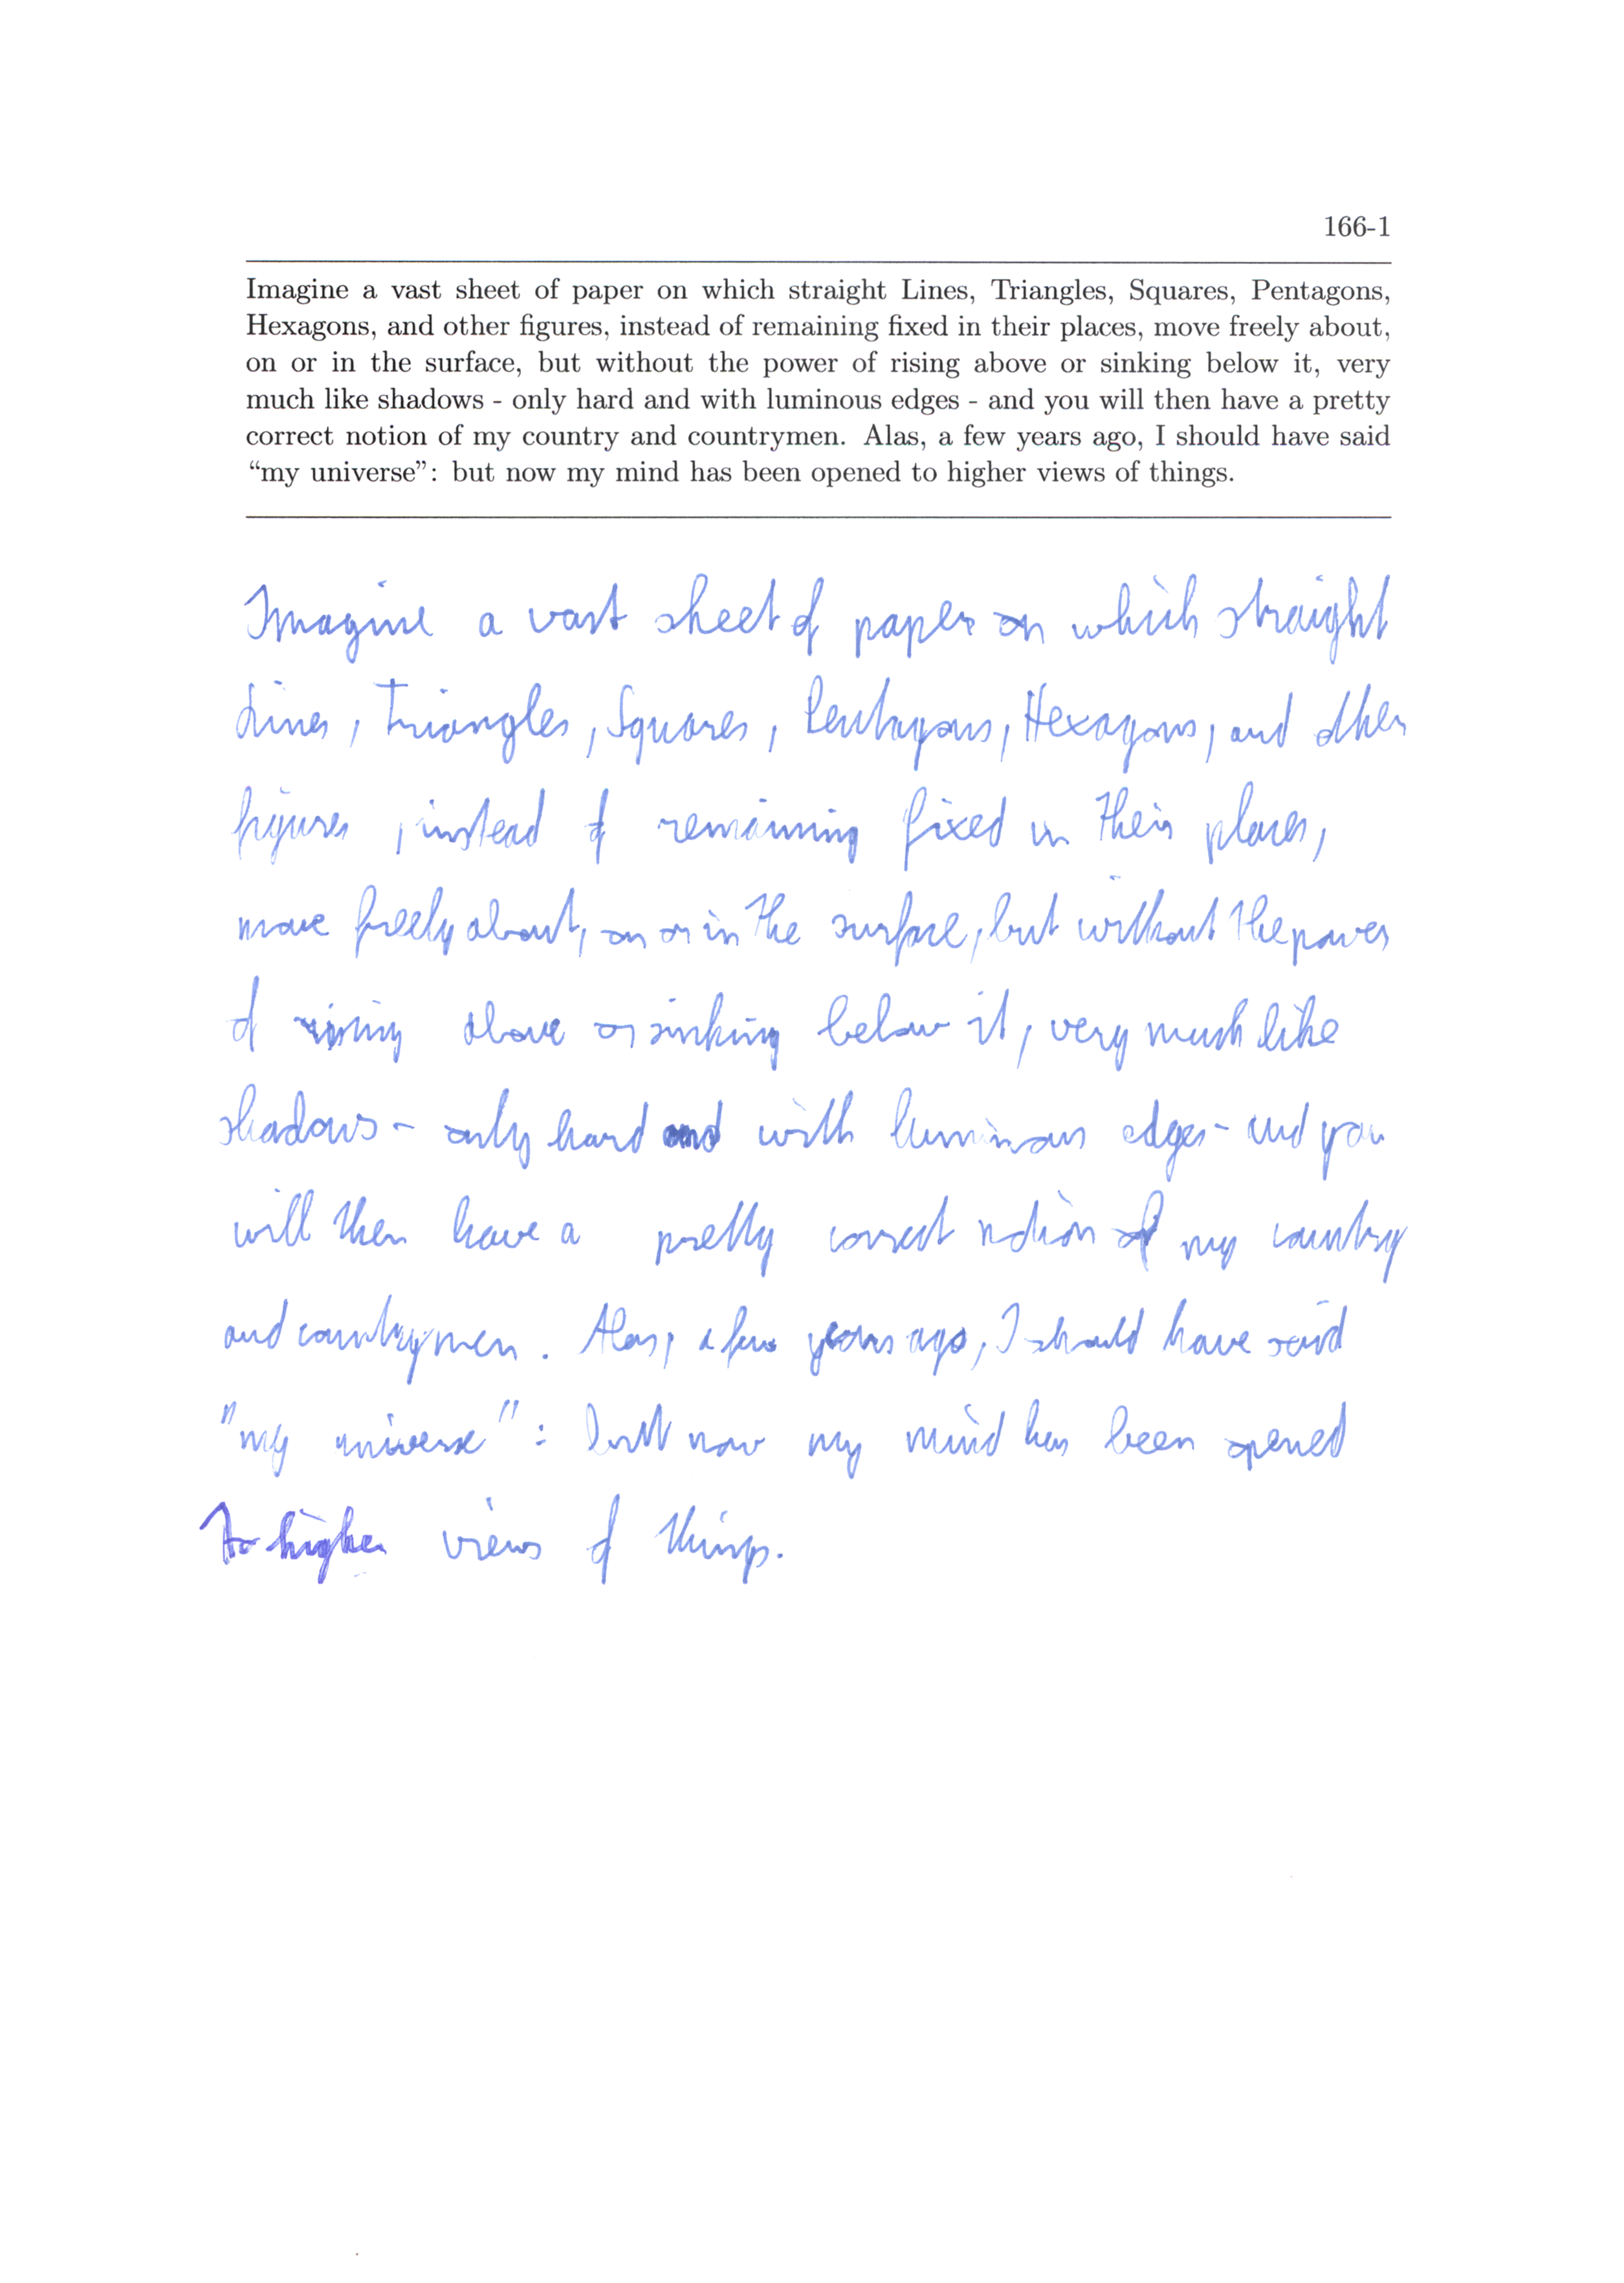 166-1
Imagine a vast sheet of paper on which straight Lines, Triangles, Squares, Pentagons,
Hexagons, and other figures, instead of remaining fixed in their places, move freely about,
on or in the surface, but without the power of rising above or sinking below it, very
much like shadows - only hard and with luminous edges - and you will then have a pretty
correct notion of my country and countrymen. Alas, a few years ago, I should have said
“my universe”: but now my mind has been opened to higher views of things.
Imagine a vast sheet of paper on which straight
Lines, Triangles, Squares, Pentagons, Hexagons, and other
figures, instead of remaining fixed in their places,
move freely about, on or in the surface, but without the power
of rising above or sinking below it, very much like
shadows - only hard and with luminous edges - and you
will then have a pretty correct notion of my country
and countrymen. Alas, a few years ago, I should have said
"my universe": but now my mind has been opened
to higher views of things.